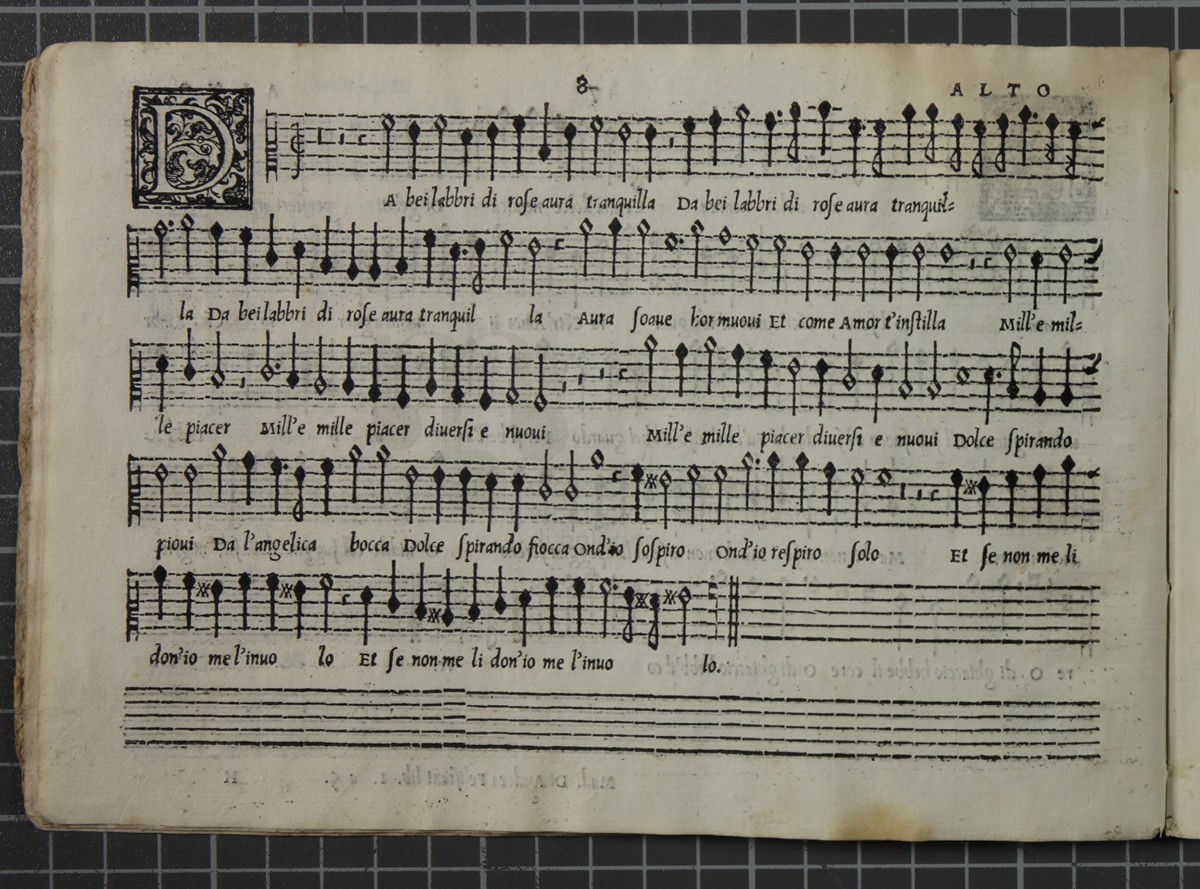 8
ALTO
DA bei labbri di rose aura tranquilla Da bei labbri di rose aura tranquil=
la Da bei labbri di rose aura tranquil la Aura soaue hor muoui Et come Amor t'instilla Mill'e mil=
le piacer Mill'e mille piacer diuersi e nuoui Mill'e mille piacer diuersi e nuoui Dolce spirando
pioui Da l'angelica bocca Dolce spirando fiocca Ond'io sospiro Ond'io respiro solo Et se non me li
don'io me l'inuo lo Et se non me li don'io me l'inuo lo.